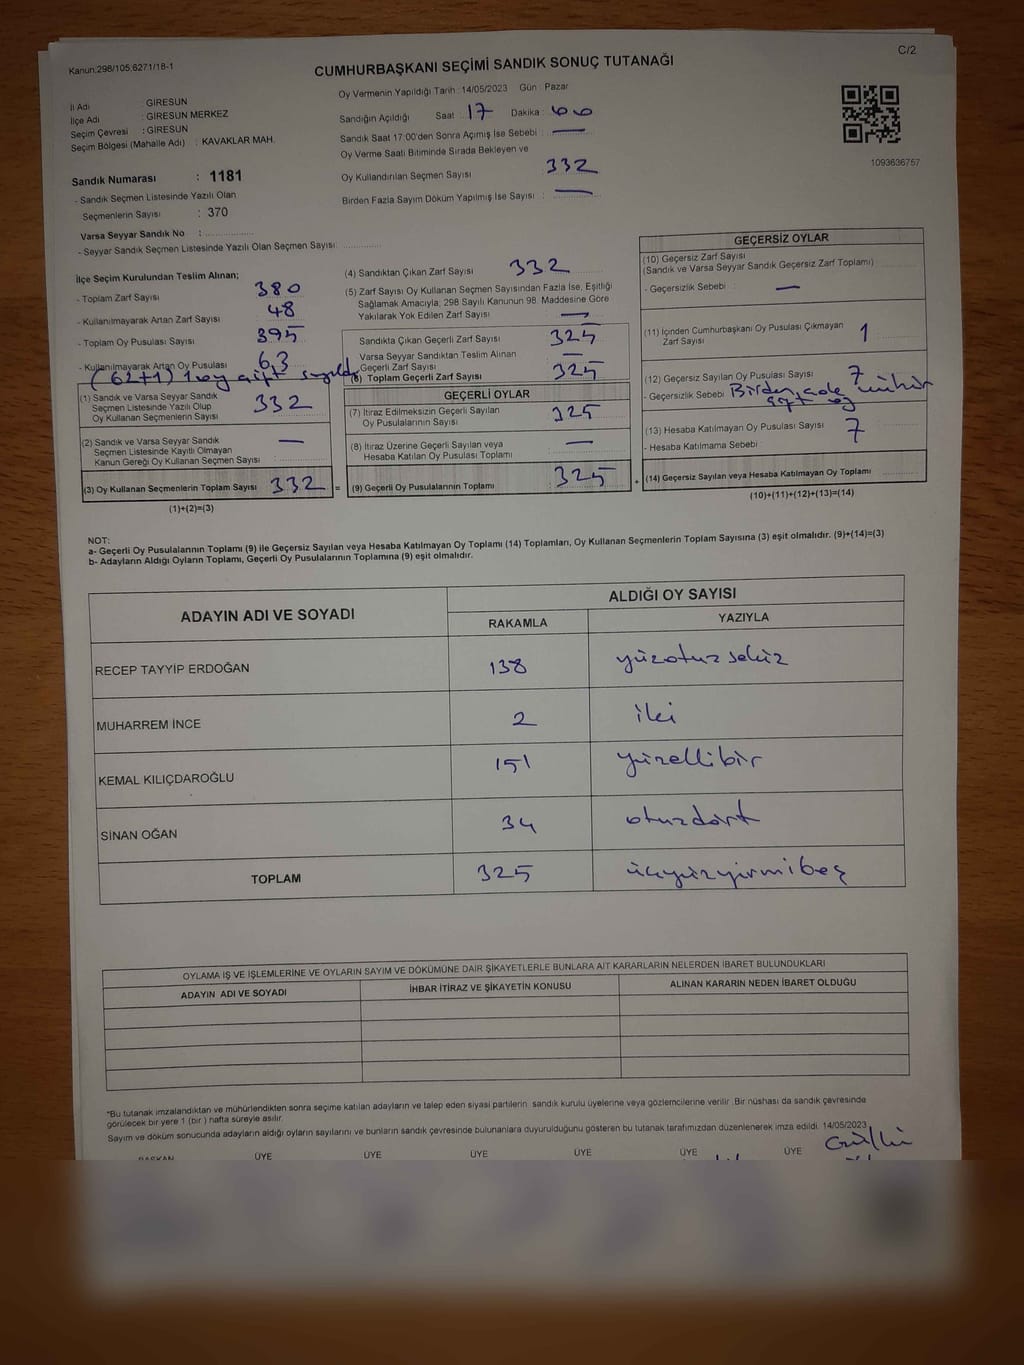 C/2
Kanun:298/105,6271/18-1
CUMHURBAŞKANI SEÇİMİ SANDIK SONUÇ TUTANAĞI
İl Adı : GİRESUN
İlçe Adı : GİRESUN MERKEZ
Seçim Çevresi : GİRESUN
Seçim Bölgesi (Mahalle Adı) : KAVAKLAR MAH.
Sandık Numarası : 1181
- Sandık Seçmen Listesinde Yazılı Olan
Seçmenlerin Sayısı : 370
Varsa Seyyar Sandık No :
- Seyyar Sandık Seçmen Listesinde Yazılı Olan Seçmen Sayısı:
Oy Vermenin Yapıldığı Tarih : 14/05/2023 Gün : Pazar
Sandığın Açıldığı Saat : 17 Dakika : 00
Sandık Saat 17:00'den Sonra Açımış İse Sebebi : —
Oy Verme Saati Bitiminde Sırada Bekleyen ve
Oy Kullandırılan Seçmen Sayısı 332
Birden Fazla Sayım Döküm Yapılmış İse Sayısı : —
1093636757
İlçe Seçim Kurulundan Teslim Alınan;
- Toplam Zarf Sayısı 380
- Kullanılmayarak Artan Zarf Sayısı 48
- Toplam Oy Pusulası Sayısı 395
- Kullanılmayarak Artan Oy Pusulası 63
(62+1) 1 oy çift sayıldı
(1) Sandık ve Varsa Seyyar Sandık
Seçmen Listesinde Yazılı Olup
Oy Kullanan Seçmenlerin Sayısı 332
(2) Sandık ve Varsa Seyyar Sandık
Seçmen Listesinde Kayıtlı Olmayan
Kanun Gereği Oy Kullanan Seçmen Sayısı —
(3) Oy Kullanan Seçmenlerin Toplam Sayısı 332 =
(1)+(2)=(3)
(4) Sandıktan Çıkan Zarf Sayısı 332
(5) Zarf Sayısı Oy Kullanan Seçmen Sayısından Fazla İse, Eşitliği
Sağlamak Amacıyla; 298 Sayılı Kanunun 98. Maddesine Göre
Yakılarak Yok Edilen Zarf Sayısı —
Sandıkta Çıkan Geçerli Zarf Sayısı 325
Varsa Seyyar Sandıktan Teslim Alınan
Geçerli Zarf Sayısı —
(6) Toplam Geçerli Zarf Sayısı 325
GEÇERLİ OYLAR
(7) İtiraz Edilmeksizin Geçerli Sayılan
Oy Pusulalarının Sayısı 325
(8) İtiraz Üzerine Geçerli Sayılan veya
Hesaba Katılan Oy Pusulası Toplamı —
(9) Geçerli Oy Pusulalarının Toplamı 325 +
GEÇERSİZ OYLAR
(10) Geçersiz Zarf Sayısı
(Sandık ve Varsa Seyyar Sandık Geçersiz Zarf Toplamı)
- Geçersizlik Sebebi —
(11) İçinden Cumhurbaşkanı Oy Pusulası Çıkmayan
Zarf Sayısı 1
(12) Geçersiz Sayılan Oy Pusulası Sayısı 7
- Geçersizlik Sebebi Birden mühür
çift oy
(13) Hesaba Katılmayan Oy Pusulası Sayısı 7
- Hesaba Katılmama Sebebi
(14) Geçersiz Sayılan veya Hesaba Katılmayan Oy Toplamı
(10)+(11)+(12)+(13)=(14)
NOT:
a- Geçerli Oy Pusulalarının Toplamı (9) ile Geçersiz Sayılan veya Hesaba Katılmayan Oy Toplamı (14) Toplamları, Oy Kullanan Seçmenlerin Toplam Sayısına (3) eşit olmalıdır. (9)+(14)=(3)
b- Adayların Aldığı Oyların Toplamı, Geçerli Oy Pusulalarının Toplamına (9) eşit olmalıdır.
ADAYIN ADI VE SOYADI ALDIĞI OY SAYISI
RAKAMLA YAZIYLA
RECEP TAYYİP ERDOĞAN 138 yüzotuzsekiz
MUHARREM İNCE 2 iki
KEMAL KILIÇDAROĞLU 151 yüzellibir
SİNAN OĞAN 34 otuzdört
TOPLAM 325 üçyüzyirmibeş
OYLAMA İŞ VE İŞLEMLERİNE VE OYLARIN SAYIM VE DÖKÜMÜNE DAİR ŞİKAYETLERLE BUNLARA AİT KARARLARIN NELERDEN İBARET BULUNDUKLARI
ADAYIN ADI VE SOYADI İHBAR İTİRAZ VE ŞİKAYETİN KONUSU ALINAN KARARIN NEDEN İBARET OLDUĞU
*Bu tutanak imzalandıktan ve mühürlendikten sonra seçime katılan adayların ve talep eden siyasi partilerin. sandık kurulu üyelerine veya gözlemcilerine verilir .Bir nüshası da sandık çevresinde
görülecek bir yere 1 (bir ) hafta süreyle asılır.
Sayım ve döküm sonucunda adayların aldığı oyların sayılarını ve bunların sandık çevresinde bulunanlara duyurulduğunu gösteren bu tutanak tarafımızdan düzenlenerek imza edildi. 14/05/2023
BAŞKAN ÜYE ÜYE ÜYE ÜYE ÜYE ÜYE